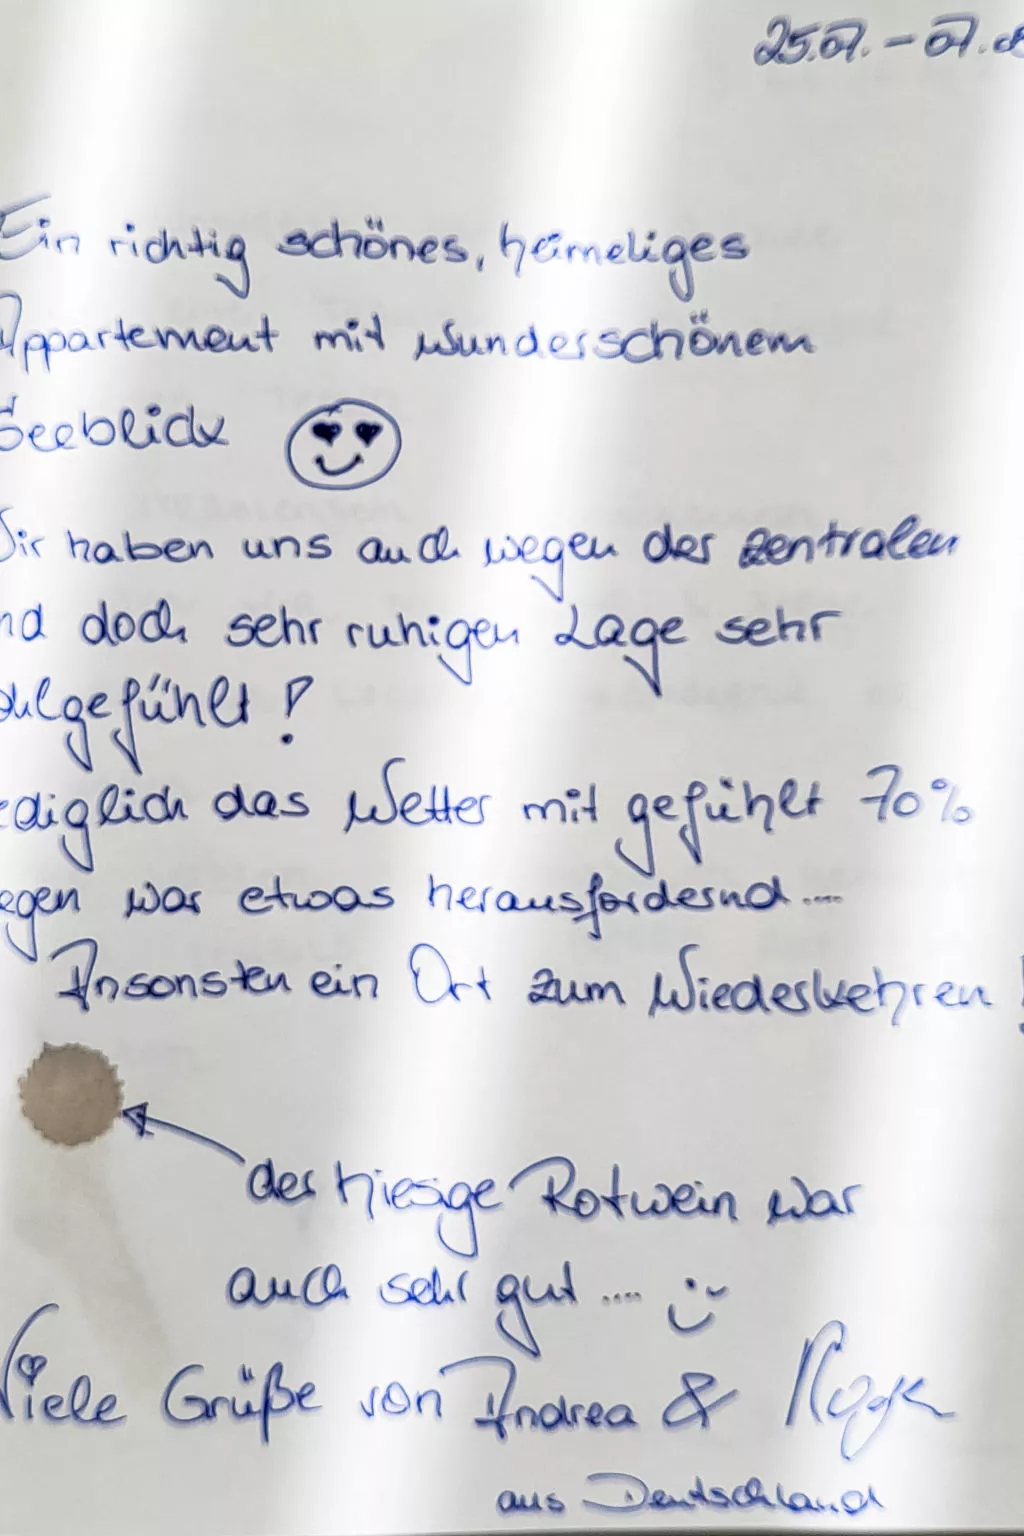 25.07. – 07.0
Ein richtig schönes, heimeliges
Appartement mit wunderschönem
Seeblick
Wir haben uns auch wegen der zentralen
nd doch sehr ruhigen Lage sehr
ohlgefühlt!
ediglich das Wetter mit gefühlt 70%
egen war etwas herausfordernd....
Ansonsten ein Ort zum Wiederkehren!
der hiesige Rotwein war
auch sehr gut.... ;-)
Viele Grüße von Andrea &
aus Deutschland